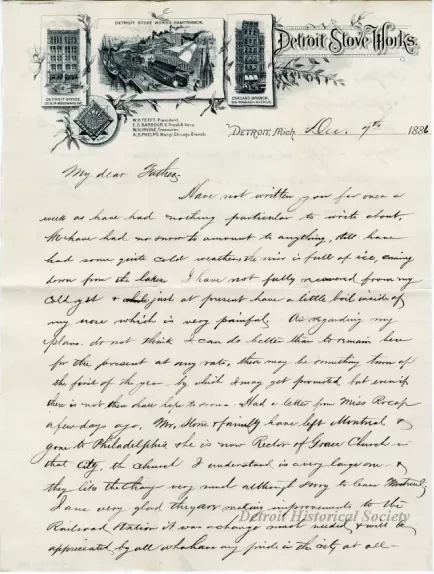 DETROIT STOVE WORKS, HAMTRAMCK.
Detroit Stove Works.
DETROIT OFFICE,
CHICAGO BRANCH,
W.H. TEFFT, President.
E.S. BARBOUR, V. Prest. & Secy.
W.H. IRVINE, Treasurer.
Chicago Branch.
DETROIT, Mich. Dec. 7th 1886
My dear Father,
Have not written you for over a
week as have had nothing particular to write about.
We have had no snow to amount to anything, still have
had some quite cold weather, the river is full of ice, coming
down from the lakes. I have not fully recovered from my
cold yet & just at present have a little boil inside of
my nose which is very painful. As regarding my
plans. do not think I can do better than to remain here
for the present at any rate, there may be something turn up
the first of the year by which I may get promoted but even if
there is not then shall hope to soon. Had a letter from Miss
a few days ago. Mr. & family have left Montreal &
gone to Philadelphia he is now Rector of Grace Church in
that city, th church I understand is a very large one &
they like the change very much although sorry to leave Montreal.
I am very glad they are making improvements to the
Railroad Station it was a change most needed & will be
appreciated by all who have any pride in the city at all—
Detroit Historical Society